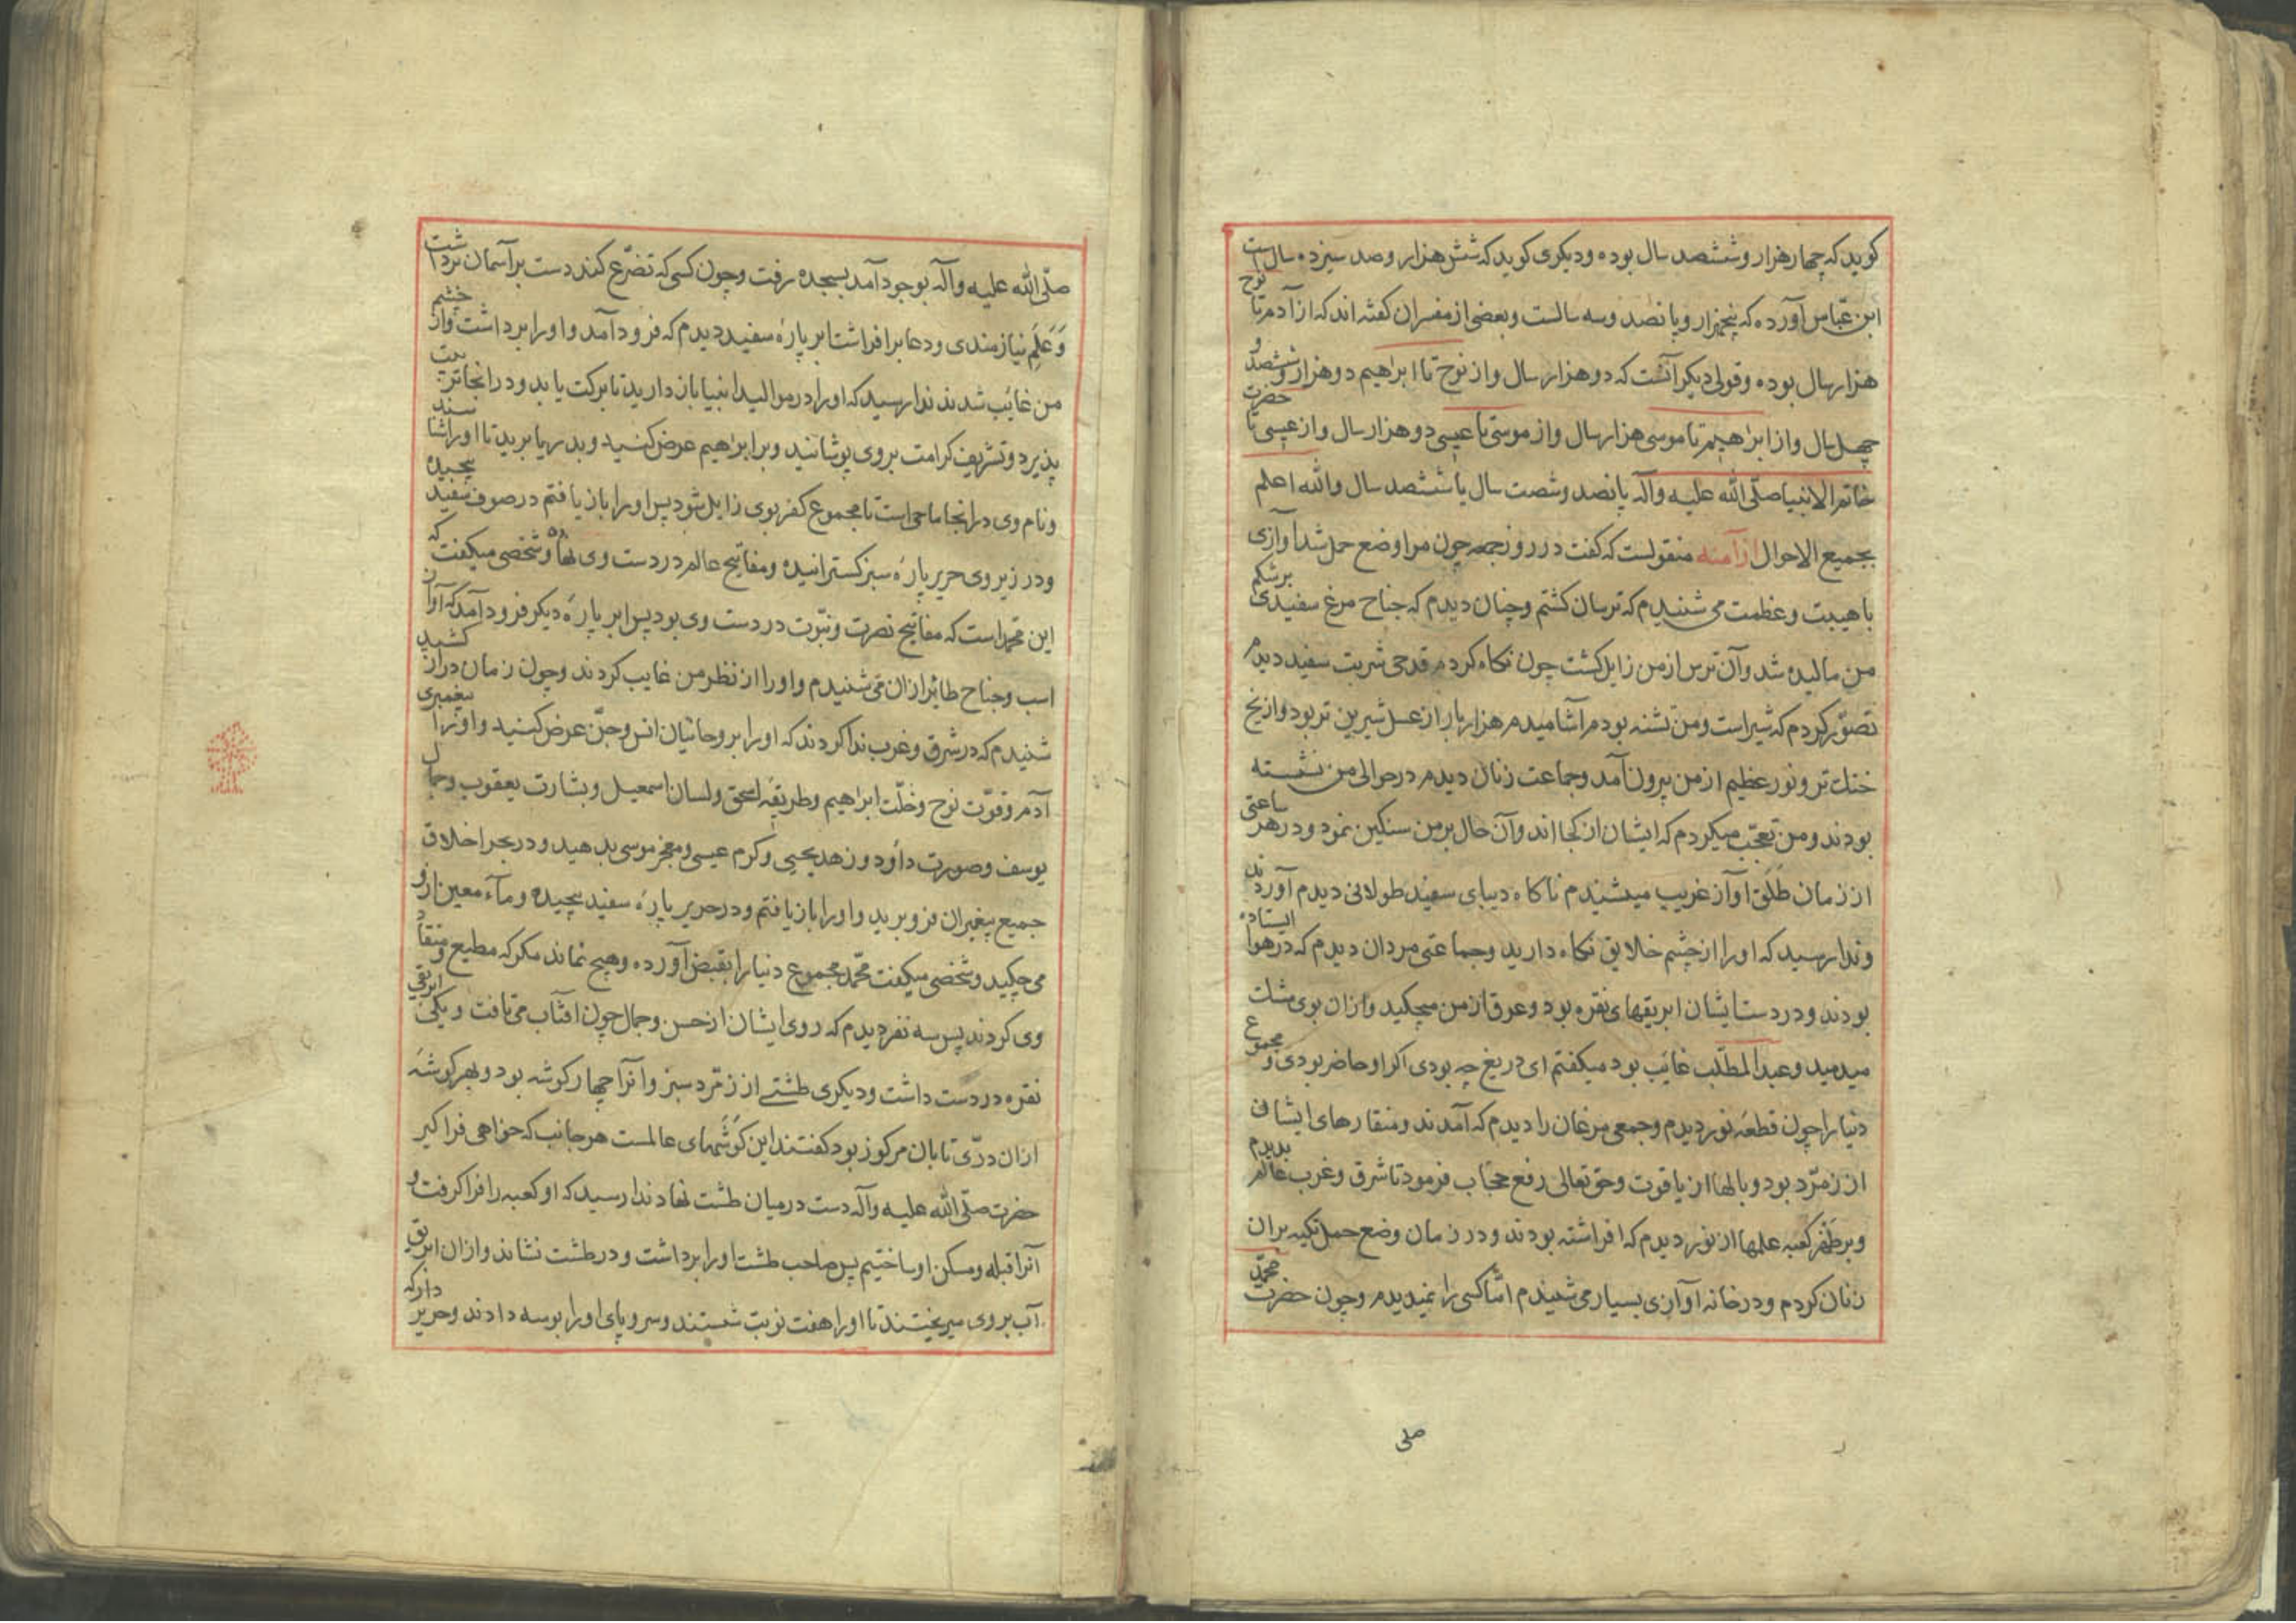 کوید که چهار هزار و ششصد سال بوده و دیکری کوید که شش هزار و صد سیزده سالست
ابن عباس آورده که پنجهزار و پانصد و سه سالست و بعضی از مفسران کفته اند که از آدم تا نوح
هزار سال بوده و قولی دیکر آنست که دو هزار سال و از نوح تا ابراهیم دو هزار و ششصد و
چهل سال و از ابراهیم تا موسی هزار سال و از موسی تا عیسی دو هزار سال و از عیسی تا حضرت
خاتم الانبیا صلّی الله علیه وآله پانصد و شصت سال یا ششصد سال والله اعلم
بجمیع الاحوال از آمنه منقولست که کفت در روز جمعه چون مرا وضع حمل شد آوازی
با هیبت و عظمت می شنیدم که ترسان کشتم و چنان دیدم که جناح مرغ سفیدی بر شکم
من مالیده شد و آن ترس از من زایل کشت چون نکاه کردم قدحی شربت سفید دیدم
تصوّر کردم که شیر است و من تشنه بودم آشامیدم هزار بار از عسل شیرین تر بود و از یخ
خنک تر و نور عظیم از من بیرون آمد و جماعت زنان دیدم در حوالی من نشسته
بودند و من تعجّب میکردم که ایشان از کجا اند و آن حال بر من سنکین نمود و در هر ساعتی
از زمان طلق آواز غریب میشنیدم ناکاه دیبای سفید طولانی دیدم آوردند
و ندا رسید که او را از چشم خلایق نکاه دارید و جماعتی مردان دیدم که در هوا ایستاده
بودند و در دست ایشان ابریقهای نقره بود و عرق از من میچکید و ازان بوی مشک
میدمید و عبد المطلّب غایب بود میکفتم ای دریغ چه بودی اکر او حاضر بودی و مجموع
دنیا را چون قطعه نور دیدم و جمعی مرغان را دیدم که آمدند و منقارهای ایشان
از زمرّد بود و بالها از یاقوت و حق تعالی رفع حجاب فرمود تا شرق و غرب عالم بدیدم
و بر ظهر کعبه علمها از نور دیدم که افراشته بودند و در زمان وضع حمل تکیه بران
زنان کردم و در خانه آوازی بسیار می شنیدم امّا کسی را نمیدیدم و چون حضرت محمّد
صلی
صلّی الله علیه وآله بوجود آمد بسجده رفت و چون کسی که تضرّع کند دست بر آسمان برداشت
وَ عَلَمِ نیازمندی و دعا برافراشت ابر پارۀ سفید دیدم که فرود آمد و او را برداشت و از چشم
من غایب شدند ندا رسید که او را در موالید انبیا باز دارید تا برکت یابد و در انجا تربیت
پذیرد و تشریف کرامت بر وی پوشانید و بر ابراهیم عرض کنید و بدریا برید تا او را شناسند
و نام وی در انجا ماحی است تا مجموع کفر بوی زایل شود پس او را باز یافتم در صوف سفید پیچیده
و در زیر وی حریر پارۀ سبز کسترانیده و مفاتیح عالم در دست وی نهاده و شخصی میکفت که
این محمّد است که مفاتیح نصرت و نبوّت در دست وی بود پس ابر پارۀ دیکر فرود آمد که آواز
اسب و جناح طایر ازان می شنیدم و او را از نظر من غایب کردند و چون زمان دراز کشید
شنیدم که در شرق و غرب ندا کردند که او را بر وحانیان انس و جنّ عرض کنید و او را پیغمبری
آدم و قوّت نوح و خلّت ابراهیم و طریقه اسحق و لسان اسمعیل و بشارت یعقوب و جمال
یوسف و صورت داود و زهد یحیی و کرم عیسی و معجز موسی بدهید و در بحر اخلاق
جمیع پیغمبران فرو برید و او را باز یافتم و در حریر پارۀ سفید پیچیده و مآء معین ازو
می چکید و شخصی میکفت محمّد مجموع دنیا را بقبض آورده و هیچ نماند مکر که مطیع و منقاد
وی کردند پس سه نفر دیدم که روی ایشان از حسن و جمال چون افتاب می تافت و یکی ابریقی
نقره در دست داشت و دیکری طشتی از زمرّد سبز و آنرا چهار کوشه بود و بهر کوشۀ
ازان درّی تابان مرکوز بود کفتند این کوشهای عالمست هر جانب که خواهی فرا کیر
حضرت صلّی الله علیه وآله دست در میان طشت نهاد ندا رسید که او کعبه را فرا کرفت و
آنرا قبله و مسکن او ساختیم پس صاحب طشت او را برداشت و در طشت نشاند و ازان ابریق
آب بر وی میریختند تا او را هفت نوبت شستند و سر و پای او را بوسه دادند و حریر دار که